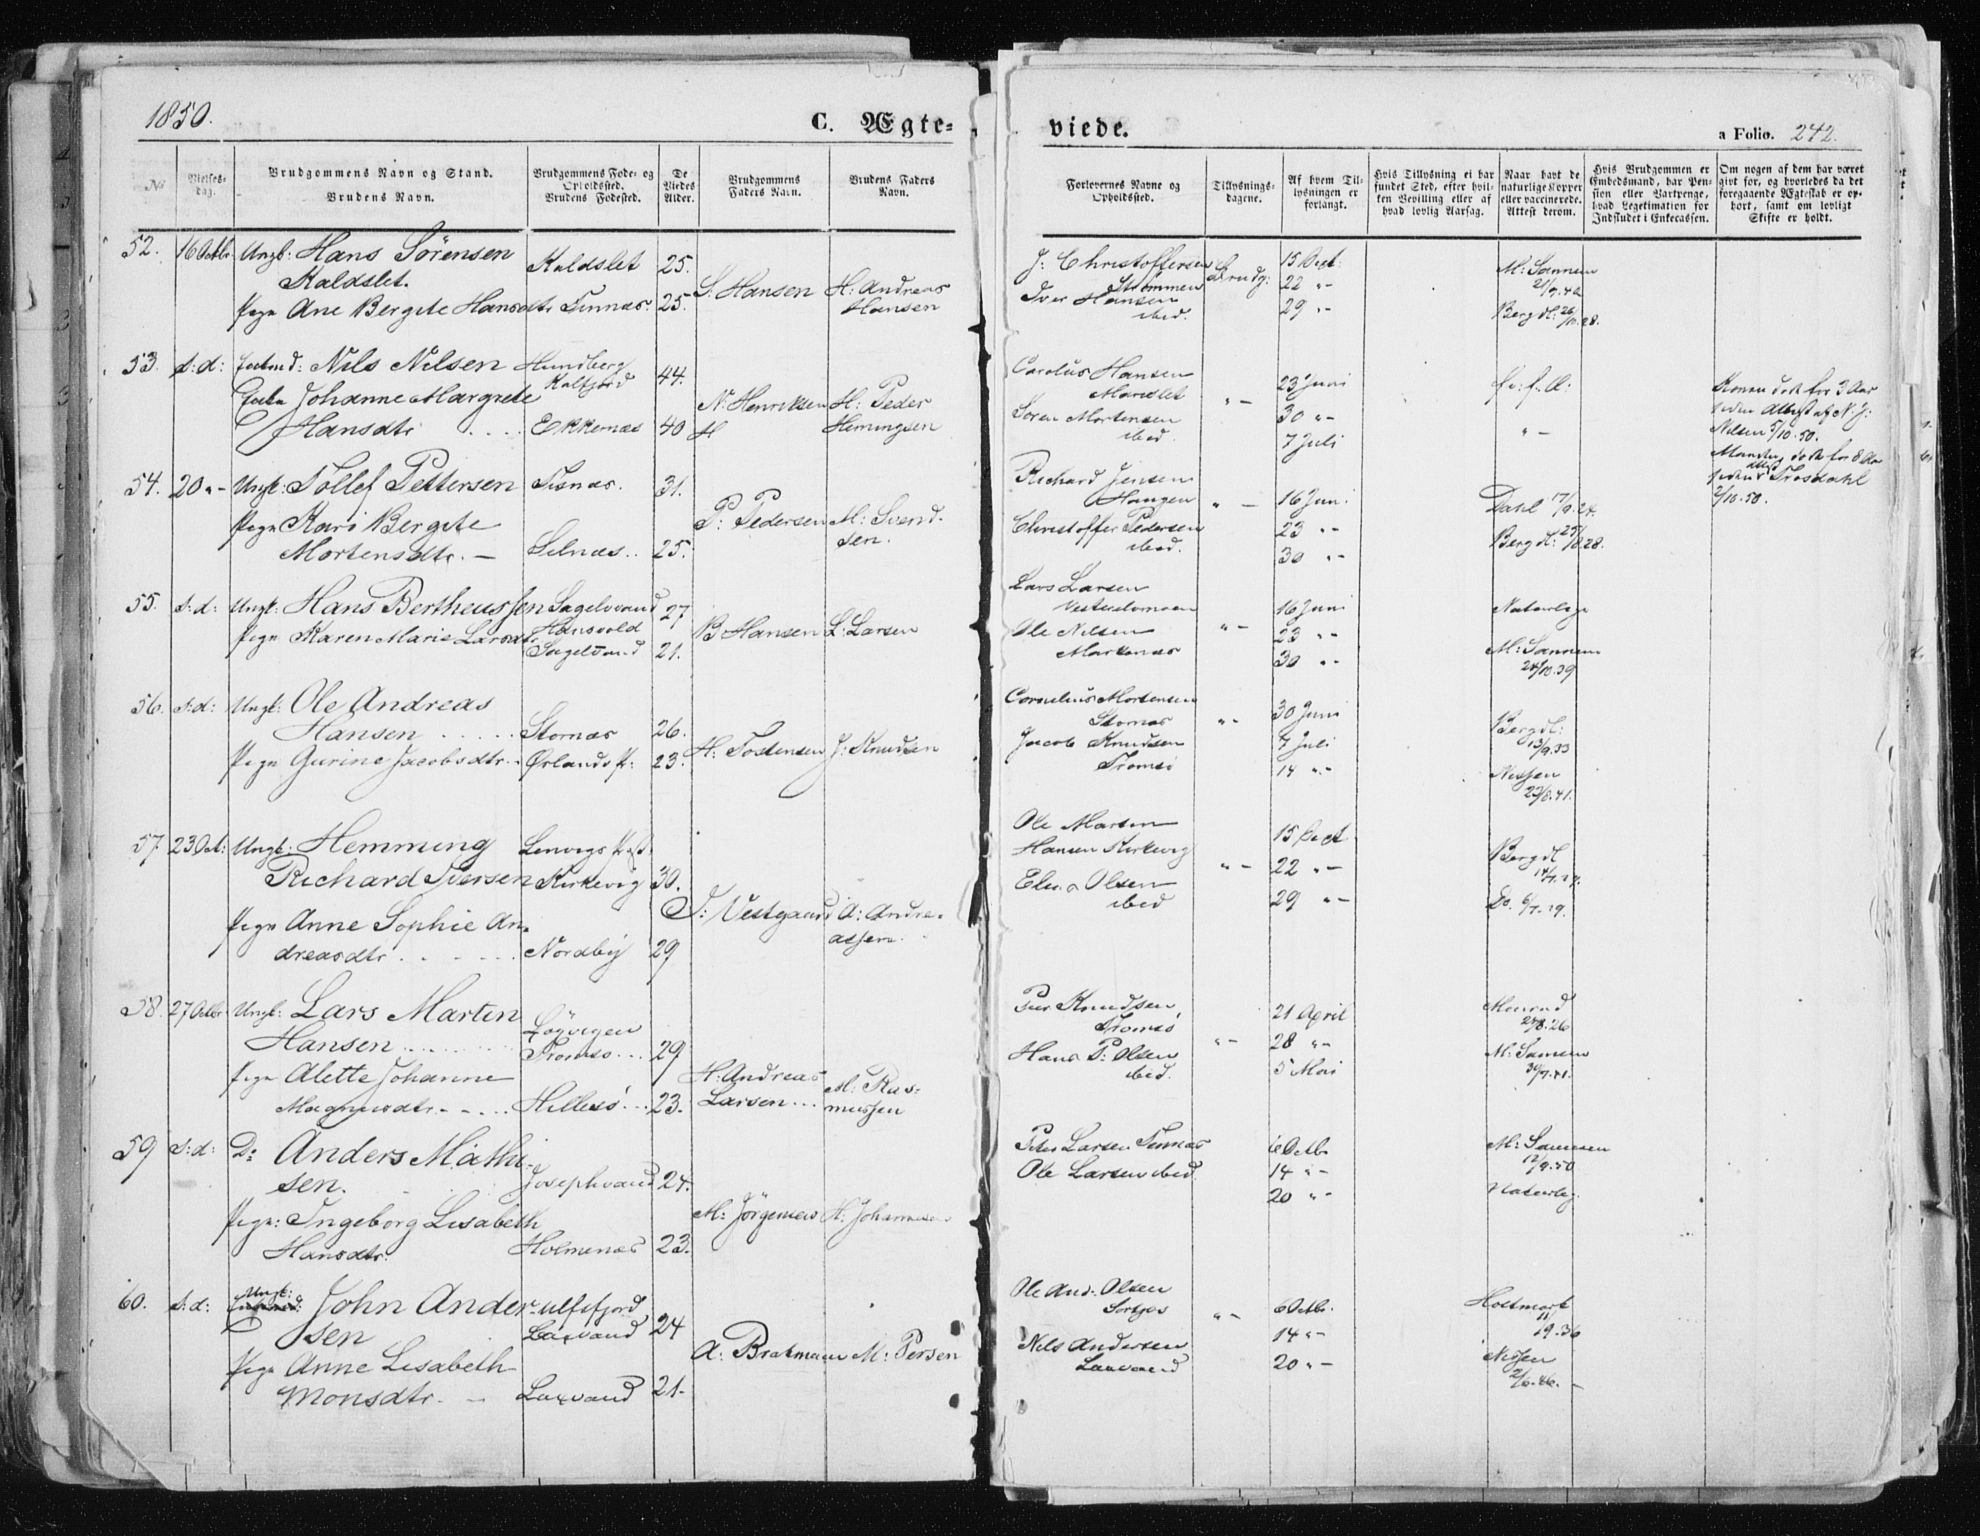 1850.
C. Ægte=
viede.
a Folio. 242.
No
Vielses-
dag.
Brudgommens Navn og Stand.
Brudens Navn.
Brudgommens Føde- og
Opholdssted.
Brudens Fødested.
De
Viedes
Alder.
Brudgommens
Faders Navn.
Brudens Faders
Navn.
Forlovernes Navne og
Opholdssted.
Tillysnings-
dagene.
Af hvem Til-
lysningen er
forlangt.
Hvis Tillysning ei har
fundet Sted, efter hvil-
ken Bevilling eller af
hvad lovlig Aarsag.
Naar havt de
naturlige Kopper
eller vaccinerede.
Attest derom.
Hvis Brudgommen er
Embedsmand, har Pen-
sion eller Vartpenge,
hvad Legitimation for
Indskudet i Enkecassen.
Om nogen af dem har været
gift før, og hvorledes da det
foregaaende Ægteskab er op-
hørt, samt om lovligt
Skifte er holdt.
52. 16 Octbr. Ungk: Hans Sörensen Kaldslet 25.
Kaldslet.
Pige Ane Bergite Hansdtr Finnæs. 25.
S. Hansen H: Andreas
Hansen
J: Christoffersen Brudg: 15 Sept.
Strömmen 22 "-
Iver Hansen 29 "-
ibid.
M: Sannem
21/9.42
Bergdl: 26/10.28.
53. S: d: Enkemd: Nils Nilsen Hundberg 44.
Kalfjord
Enke Johanne Margrete
Hansdtr .... Ekkernæs 40
N: Henriksen H: Peder
Hemingsen
Carolus Hansen
23 Juni
Soren Mortensen " - 30 "-
ibid. 7 Juli
Konen död for 3 Aar
siden
Nilsen 5/10.50.
Manden död for 8 Aar
siden
2/10.50.
54. 20 "- Ungk: Tollef Pettersen Finæs. 31.
Pige Kari Bergite
Mortensdtr. - Selnæs.. 25.
P: Pedersen M: Svend-
sen.
Richard Jensen
Haugen " - 16 Juni
Christoffer Pedersen 23 "-
ibid. 30 "-
Dahl 17/9.24.
Bergdl: 25/8.28.
55. S: d: Ungk: Hans Bertheussen Sagelvvand 27
Pige Karen Marie Larsdtr Hansvold
Sagelvand 21.
B Hansen L: Larsen
Lars Larsen
16 Juni
Ole Nilsen " - 23 "-
Markenæs 30 "-
Naturlige
M: Sannem
24/10.39
56. S: d: Ungk: Ole Andreas
Hansen ..... Stornæs 26.
Pige Gurine Jacobsdtr. Ørlands Pr: 23.
H: Tostensen J: Knudsen
Cornelius Mortensen
Stornæs " - 30 Juni
Jacob Knudsen 7 Juli
Tromsö 14 "-
Bergdl:
13/9.33
Nissen
23/8.41.
57. 23 Oct: Ungk: Hemming Lenvigs Præst.
Richard Iversen Kirkevig 30.
Pige Anne Sophie An-
dreasdtr ..... Nordby 29
I: Vestgaard A: Andre-
assen.
Ole Martin
Hansen Kirkevig 15 Sept
" - 22 "-
Olsen
ibid 29 "-
Bergdl
Do.
58. 27 Octbr Ungk: Lars Martin
Hansen ....... Tromsö ... 29
Pige Alette Johanne
Magnusdtr. .... Hillesö ... 23.
H: Andreas
Larsen ...
M: Ras-
mussen
Peer Knudsen 21 April
Tromsö " - 28 "-
Hans P: Olsen 5 Mai
ibid.
Monrad
24/8.26
M: Sannem
30/9.41.
59 S: d: Do Anders Mathi-
sen. Josephvand 24.
Pige: Ingeborg Lisabeth
Hansdtr. Holmenæs 23.
M: Jörgensen H: Johannesen
Peter Larsen Finnæs 6 Octb.
Ole Larsen ibid. 14 "-
20 "-
M: Sannem
12/9.50
Naturlig.
60. S: d: Ungk: John Ander- Ulfsfjord
sen Laxvand 24
Pige Anne Lisabeth
Monsdtr. - Laxvand 21.
A: Brateng M: Persen
Ole And. Olsen
" - 6 Octbr.
14 "-
Nils Andersen
Laxvand 20 "-
Holtmark
11/9.36
Nissen
2/6.46. -